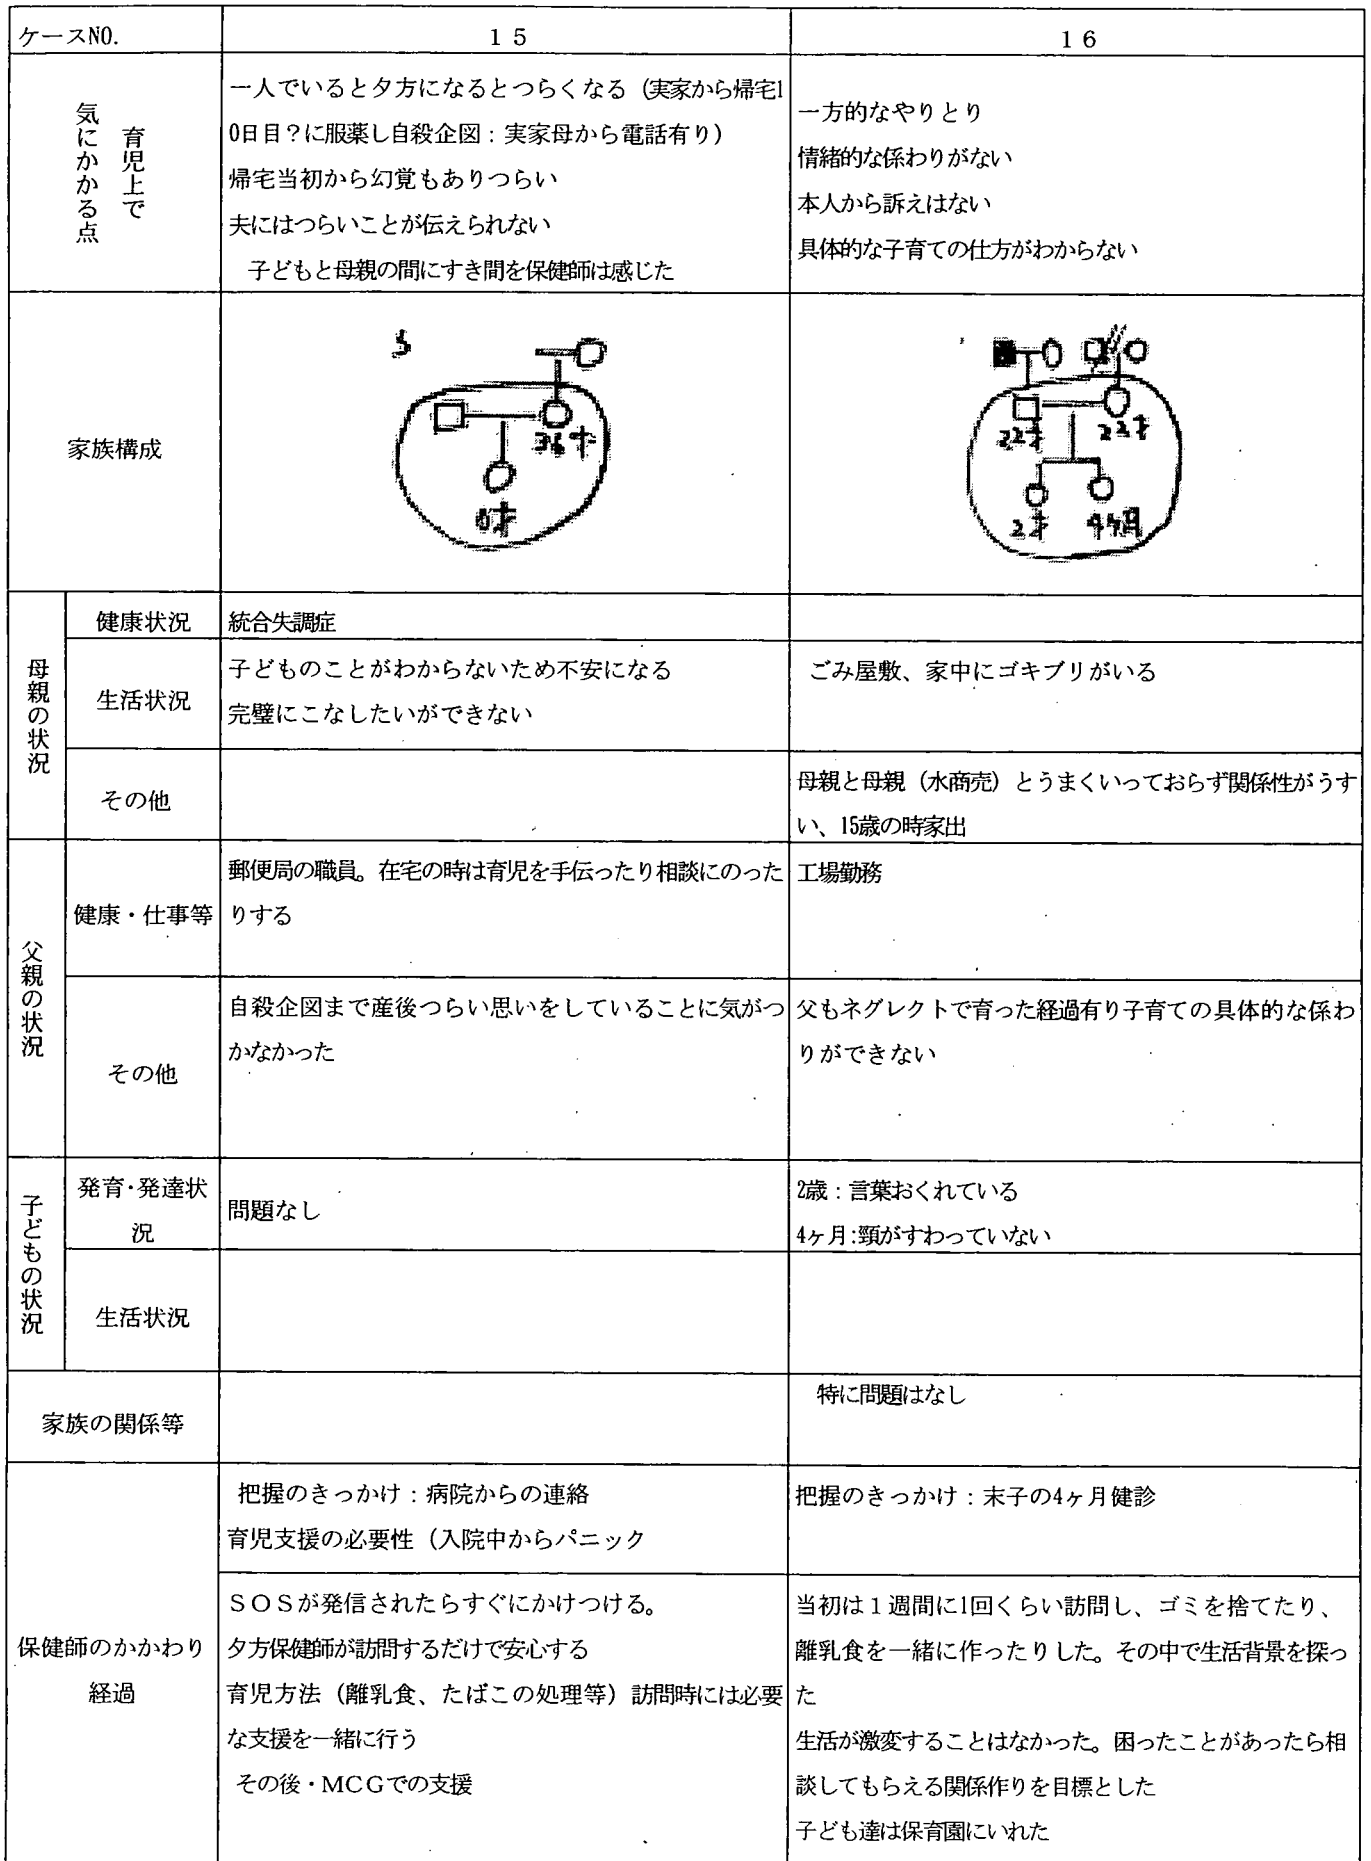 ケースNO.
15
16
育児上で
気にかかる点
一人でいると夕方になるとつらくなる（実家から帰宅1
0日目？に服薬し自殺企図：実家母から電話有り）
帰宅当初から幻覚もありつらい
夫にはつらいことが伝えられない
子どもと母親の間にすき間を保健師は感じた
一方的なやりとり
情緒的な係わりがない
本人から訴えはない
具体的な子育ての仕方がわからない
家族構成
36才
0才
22才
22才
2才
4ヶ月
母親の状況
健康状況
統合失調症
生活状況
子どものことがわからないため不安になる
完璧にこなしたいができない
ごみ屋敷、家中にゴキブリがいる
その他
母親と母親（水商売）とうまくいっておらず関係性がうす
い、15歳の時家出
父親の状況
健康・仕事等
郵便局の職員。在宅の時は育児を手伝ったり相談にのった
りする
工場勤務
その他
自殺企図まで産後つらい思いをしていることに気がつ
かなかった
父もネグレクトで育った経過有り子育ての具体的な係わ
りができない
子どもの状況
発育・発達状
況
問題なし
2歳：言葉おくれている
4ヶ月:頸がすわっていない
生活状況
家族の関係等
特に問題はなし
保健師のかかわり
経過
把握のきっかけ：病院からの連絡
育児支援の必要性（入院中からパニック
把握のきっかけ：末子の4ヶ月健診
ＳＯＳが発信されたらすぐにかけつける。
夕方保健師が訪問するだけで安心する
育児方法（離乳食、たばこの処理等）訪問時には必要
な支援を一緒に行う
その後・ＭＣＧでの支援
当初は１週間に1回くらい訪問し、ゴミを捨てたり、
離乳食を一緒に作ったりした。その中で生活背景を探っ
た
生活が激変することはなかった。困ったことがあったら相
談してもらえる関係作りを目標とした
子ども達は保育園にいれた